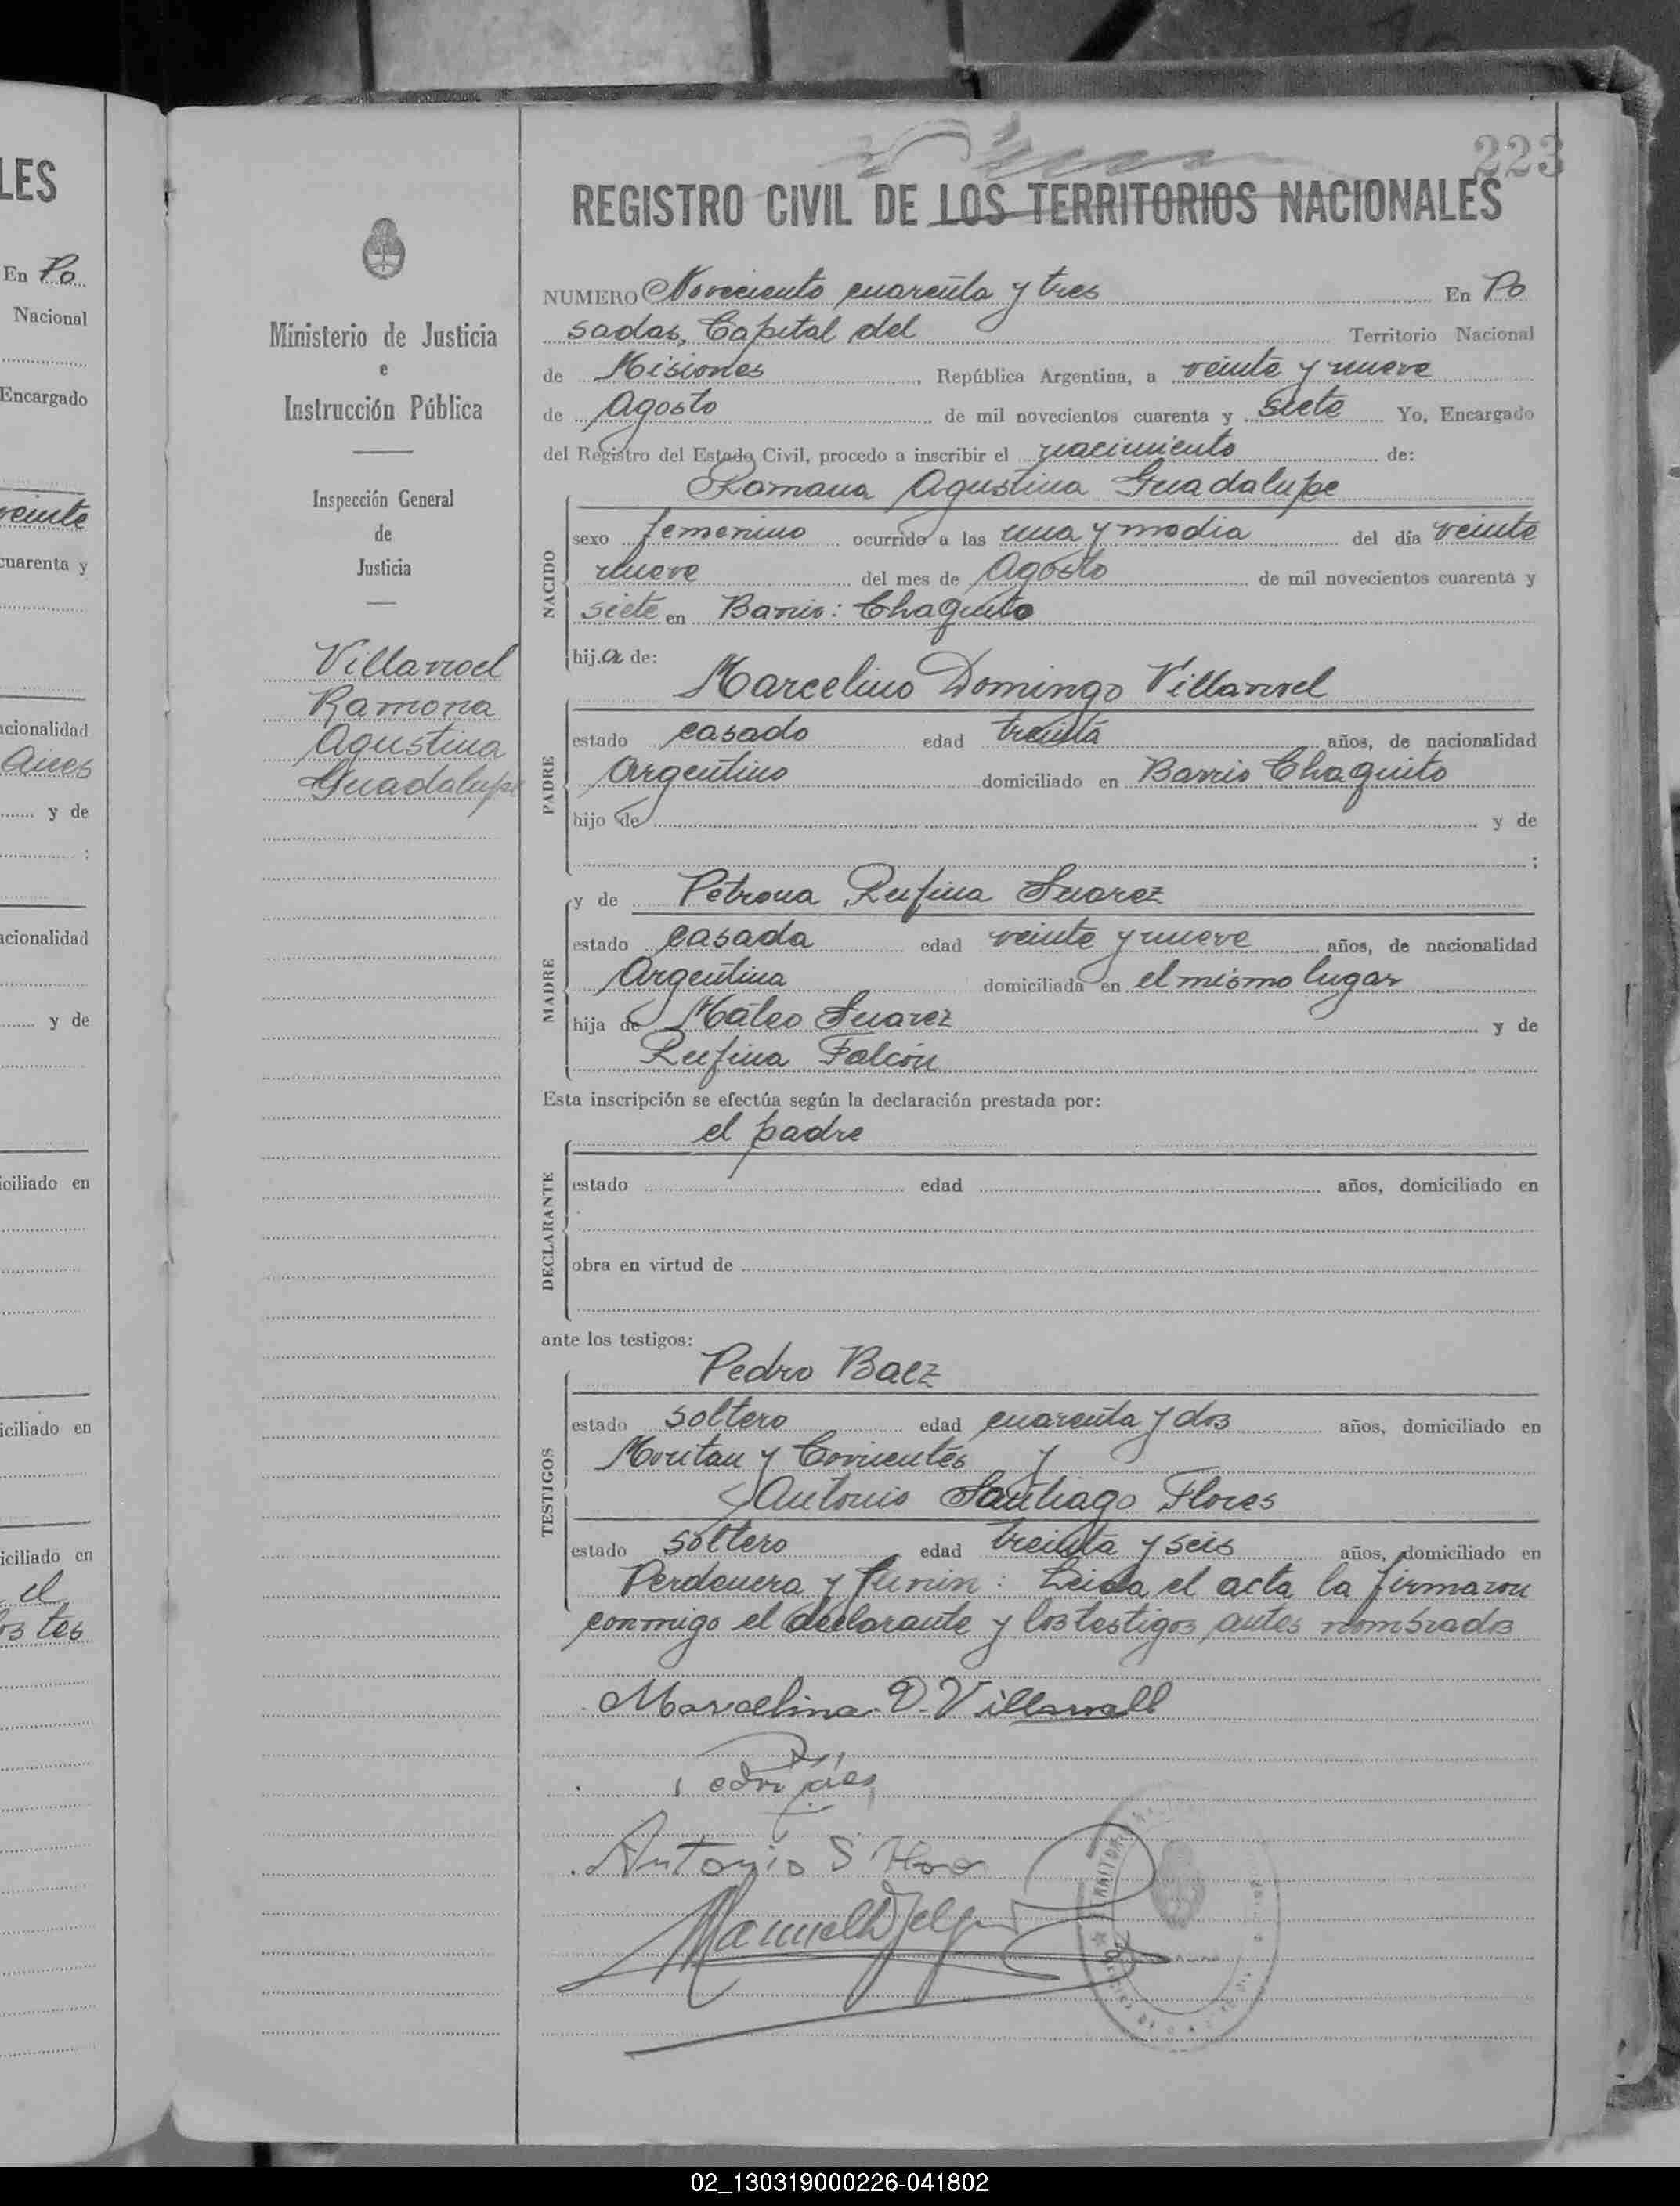 LES
En Po
Nacional
Encargado
veinte
cuarenta y
acionalidad
Aires
y de
;
acionalidad
y de
iciliado en
iciliado en
iciliado en
el
os tes
Ministerio de Justicia
e
Instrucción Pública
Inspección General
de
Justicia
Villarroel
Ramona
Agustina
Guadalupe
223
REGISTRO CIVIL DE LOS TERRITORIOS NACIONALES
NUMERO Noveciento cuarenta y tres En Po
sadas, Capital del Territorio Nacional
de Misiones, República Argentina, a veinte y nueve
de Agosto de mil novecientos cuarenta y siete Yo, Encargado
del Registro del Estado Civil, procedo a inscribir el nacimiento de:
Romana Agustina Guadalupe
NACIDO
sexo femenino ocurrido a las una y media del día veinte
nueve del mes de Agosto de mil novecientos cuarenta y
siete en Barrio: Chaquito
hija de:
Marcelino Domingo Villarroel
PADRE
estado casado edad treinta años, de nacionalidad
Argentino domiciliado en Barrio Chaquito
hijo de y de
;
y de Petrona Rufina Suarez
MADRE
estado casada edad veinte y nueve años, de nacionalidad
Argentina domiciliada en el mismo lugar
hija de Máteo Suarez y de
Rufina Falcón
Esta inscripción se efectúa según la declaración prestada por:
el padre
DECLARANTE
estado edad años, domiciliado en
obra en virtud de
ante los testigos:
Pedro Baez
TESTIGOS
estado soltero edad cuarenta y dos años, domiciliado en
y Corrientes y
Antonio Santiago Flores
estado soltero edad treinta y seis años, domiciliado en
y Junin: Leida el acta la firmaron
conmigo el declarante y los testigos antes nombrados
Marcelino D. Villarroell
Antonio S
02_130319000226-041802